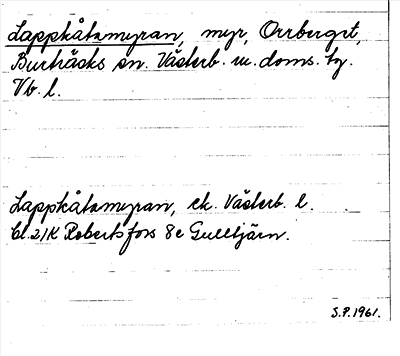 Lappkåtamyran, myr, Orrberget,
Burträsks sn. Västerb. m. doms. tg.
Vb. l.
Lappkåtamyran, ek. Västerb. l.
Bl. 21K Robertsfors 8e Gulltjärn.
S.P. 1961.